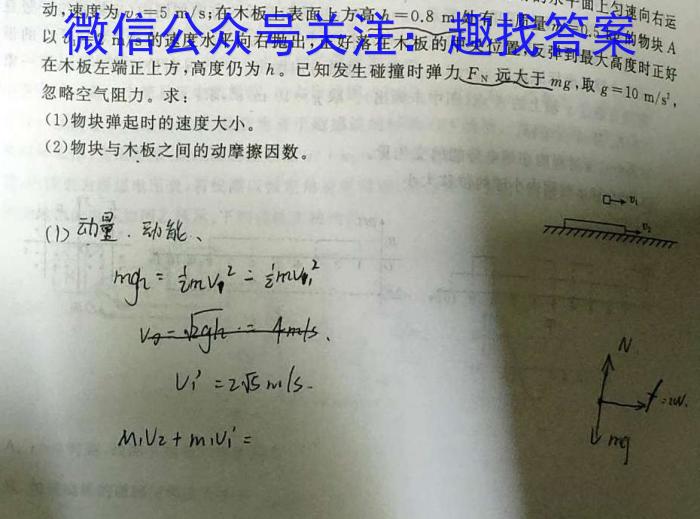 平面上匀速向右运
动,速度为 =5 m/s;在木板上表面上方高h=0.8 m处有 质量 =0.5 的物块A
以 的速度水平向右抛出, 好落在木板的 位置,反弹到最大高度时正好
微信公众号关注:趣找答案
在木板左端正上方,高度仍为h。已知发生碰撞时弹力F_N远大于mg,取g=10 m/s²,
忽略空气阻力。求:
(1)物块弹起时的速度大小。
(2)物块与木板之间的动摩擦因数。
v₁
v₂
(1) 动量.动能、
mgh = ½mv₁² = ½mv₁'²
= √2gh = 4m/s.
V₁' = 2√5 m/s.
M₁V₂ + m₁V₁' =
N
f
mg